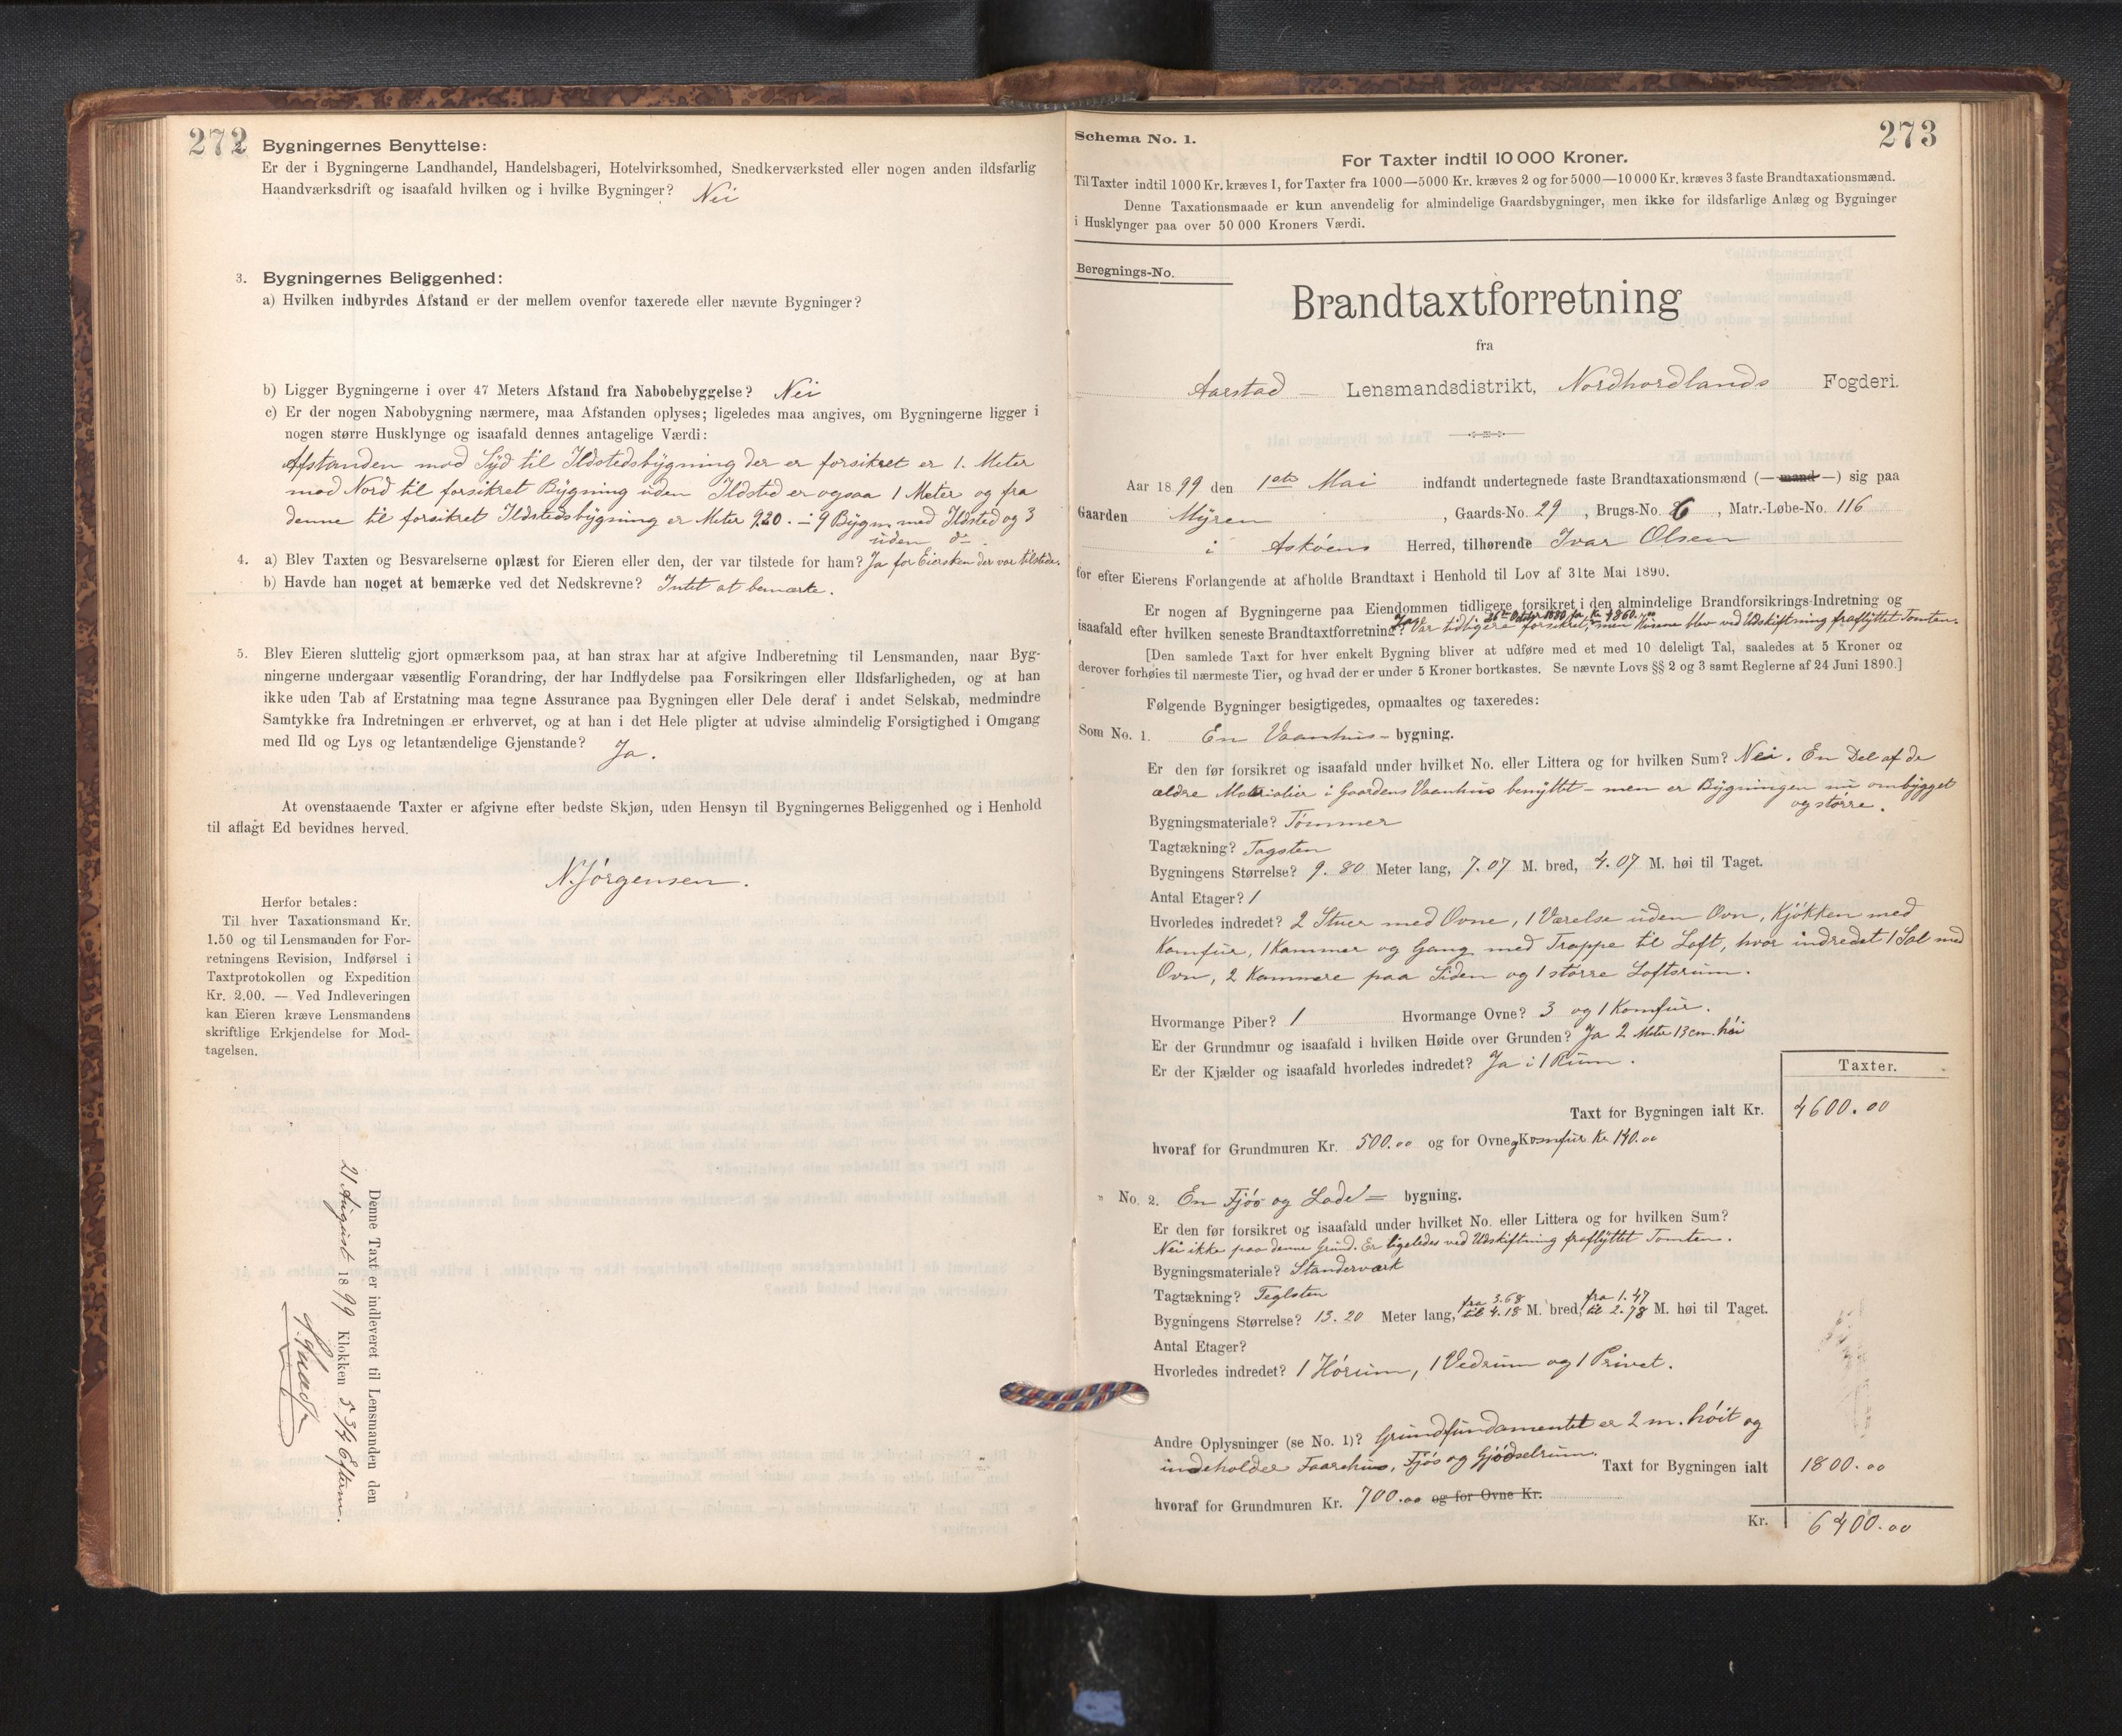 272
Bygningernes Benyttelse:
Er der i Bygningerne Landhandel, Handelsbageri, Hotelvirksomhed, Snedkerværksted eller nogen anden ildsfarlig
Haandværksdrift og isaafald hvilken og i hvilke Bygninger? Nei
3. Bygningernes Beliggenhed:
a) Hvilken indbyrdes Afstand er der mellem ovenfor taxerede eller nævnte Bygninger?
b) Ligger Bygningerne i over 47 Meters Afstand fra Nabobebyggelse? Nei
c) Er der nogen Nabobygning nærmere, maa Afstanden oplyses; ligeledes maa angives, om Bygningerne ligger i
nogen større Husklynge og isaafald dennes antagelige Værdi:
Afstanden mod Syd til Ildstedsbygning der er forsikret er 1. Meter
mod Nord til forsikret Bygning uden Ildsted er ogsaa 1 Meter og fra
denne til forsikret Ildstedsbygning er Meter 9.20. – i 9 Bygn. med Ildsted og 3
uden do.
4. a) Blev Taxten og Besvarelserne oplæst for Eieren eller den, der var tilstede for ham? Ja for Eiersken der var tilstede.
b) Havde han noget at bemærke ved det Nedskrevne? Intet at bemærke.
5. Blev Eieren sluttelig gjort opmærksom paa, at han strax har at afgive Indberetning til Lensmanden, naar Byg-
ningerne undergaar væsentlig Forandring, der har Indflydelse paa Forsikringen eller Ildsfarligheden, og at han
ikke uden Tab af Erstatning maa tegne Assurance paa Bygningen eller Dele deraf i andet Selskab, medmindre
Samtykke fra Indretningen er erhvervet, og at han i det Hele pligter at udvise almindelig Forsigtighed i Omgang
med Ild og Lys og letantændelige Gjenstande? Ja.
At ovenstaaende Taxter er afgivne efter bedste Skjøn, uden Hensyn til Bygningernes Beliggenhed og i Henhold
til aflagt Ed bevidnes herved.
N. Jörgensen.
Herfor betales:
Til hver Taxationsmand Kr.
1.50 og til Lensmanden for For-
retningens Revision, Indførsel i
Taxtprotokollen og Expedition
Kr. 2.00. — Ved Indleveringen
kan Eieren kræve Lensmandens
skriftlige Erkjendelse for Mod-
tagelsen.
Denne Taxt er indleveret til Lensmanden den
21 August 1899 Klokken 5 3/4 Efterm.
273
Schema No. 1.
For Taxter indtil 10 000 Kroner.
Til Taxter indtil 1000 Kr. kræves 1, for Taxter fra 1000—5000 Kr. kræves 2 og for 5000—10 000 Kr. kræves 3 faste Brandtaxationsmænd.
Denne Taxationsmaade er kun anvendelig for almindelige Gaardsbygninger, men ikke for ildsfarlige Anlæg og Bygninger
i Husklynger paa over 50 000 Kroners Værdi.
Beregnings-No.
Brandtaxtforretning
fra
Aarstad – Lensmandsdistrikt, Nordhordlands Fogderi.
Aar 1899 den 1ste Mai indfandt undertegnede faste Brandtaxationsmænd (—mand—) sig paa
Gaarden Myren , Gaards-No. 29 , Brugs-No. 6 , Matr.-Løbe-No. 116
i Askøens Herred, tilhørende Ivar Olsen
for efter Eierens Forlangende at afholde Brandtaxt i Henhold til Lov af 31te Mai 1890.
Er nogen af Bygningerne paa Eiendommen tidligere forsikret i den almindelige Brandforsikrings-Indretning og
26de Oktbr 1880 for Kr. 4860.00
isaafald efter hvilken seneste Brandtaxtforretning? Var tidligere forsikret, men Husene blev ved Udskiftning fraflyttet Tomten.
[Den samlede Taxt for hver enkelt Bygning bliver at udføre med et med 10 deleligt Tal, saaledes at 5 Kroner og
derover forhøies til nærmeste Tier, og hvad der er under 5 Kroner bortkastes. Se nævnte Lovs §§ 2 og 3 samt Reglerne af 24 Juni 1890.]
Følgende Bygninger besigtigedes, opmaaltes og taxeredes:
Som No. 1. En Vaanhus – bygning.
Er den før forsikret og isaafald under hvilket No. eller Littera og for hvilken Sum? Nei. En Del af de
ældre Materialier i Gaardens Vaanhus benyttet – men er Bygningen nu ombygget
og større.
Bygningsmateriale? Tömmer
Tagtækning? Tagsten
Bygningens Størrelse? 9.80 Meter lang, 7.07 M. bred, 4.07 M. høi til Taget.
Antal Etager? 1
Hvorledes indredet? 2 Stuer med Ovne, 1 Værelse uden Ovn, Kjökken med
Komfur, 1 Kammer og Gang med Trappe til Loft, hvor indredet 1 Sal med
Ovn, 2 Kammere paa Siden og 1 större Loftsrum.
Hvormange Piber? 1 Hvormange Ovne? 3 og 1 Komfur.
Er der Grundmur og isaafald i hvilken Høide over Grunden? Ja 2 Meter 13 cm. höi
Er der Kjælder og isaafald hvorledes indredet? Ja i 1 Rum.
Taxter.
Taxt for Bygningen ialt Kr. 4600.00
hvoraf for Grundmuren Kr. 500.00 og for Ovne og Komfur Kr. 140.00
" No. 2. En Fjös og Lade – bygning.
Er den før forsikret og isaafald under hvilket No. eller Littera og for hvilken Sum?
Nei ikke paa denne Grund. Er ligeledes ved Udskiftning fraflyttet Tomten.
Bygningsmateriale? Standerværk
Tagtækning? Teglsten
Bygningens Størrelse? 13.20 Meter lang, fra 3.68 til 4.18 M. bred, fra 1.47 til 2.78 M. høi til Taget.
Antal Etager?
Hvorledes indredet? 1 Hörum, 1 Vedrum og 1 Privet.
Andre Oplysninger (se No. 1)? Grundfundamentet er 2 m. höit og
indeholder Faarehus, Fjös og Gjödselrum. Taxt for Bygningen ialt 1800.00
hvoraf for Grundmuren Kr. 700.00 og for Ovne Kr.
Kr. 6400.00